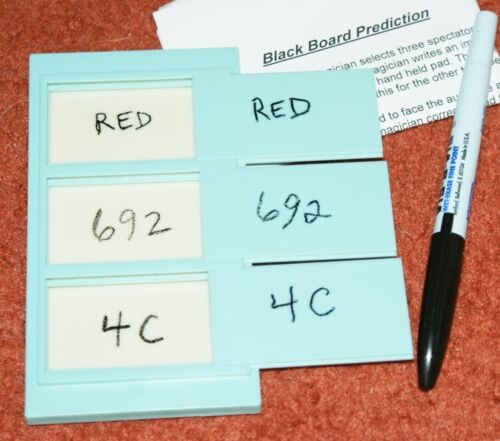 Black Board Prediction
magician selects three spectator
magician writes an im
hand held pad. Th
this for the other
d to face the au
magician correct
RED RED
692 692
4C 4C
WET-ERASE FINE POINT
Made in U.S.A.